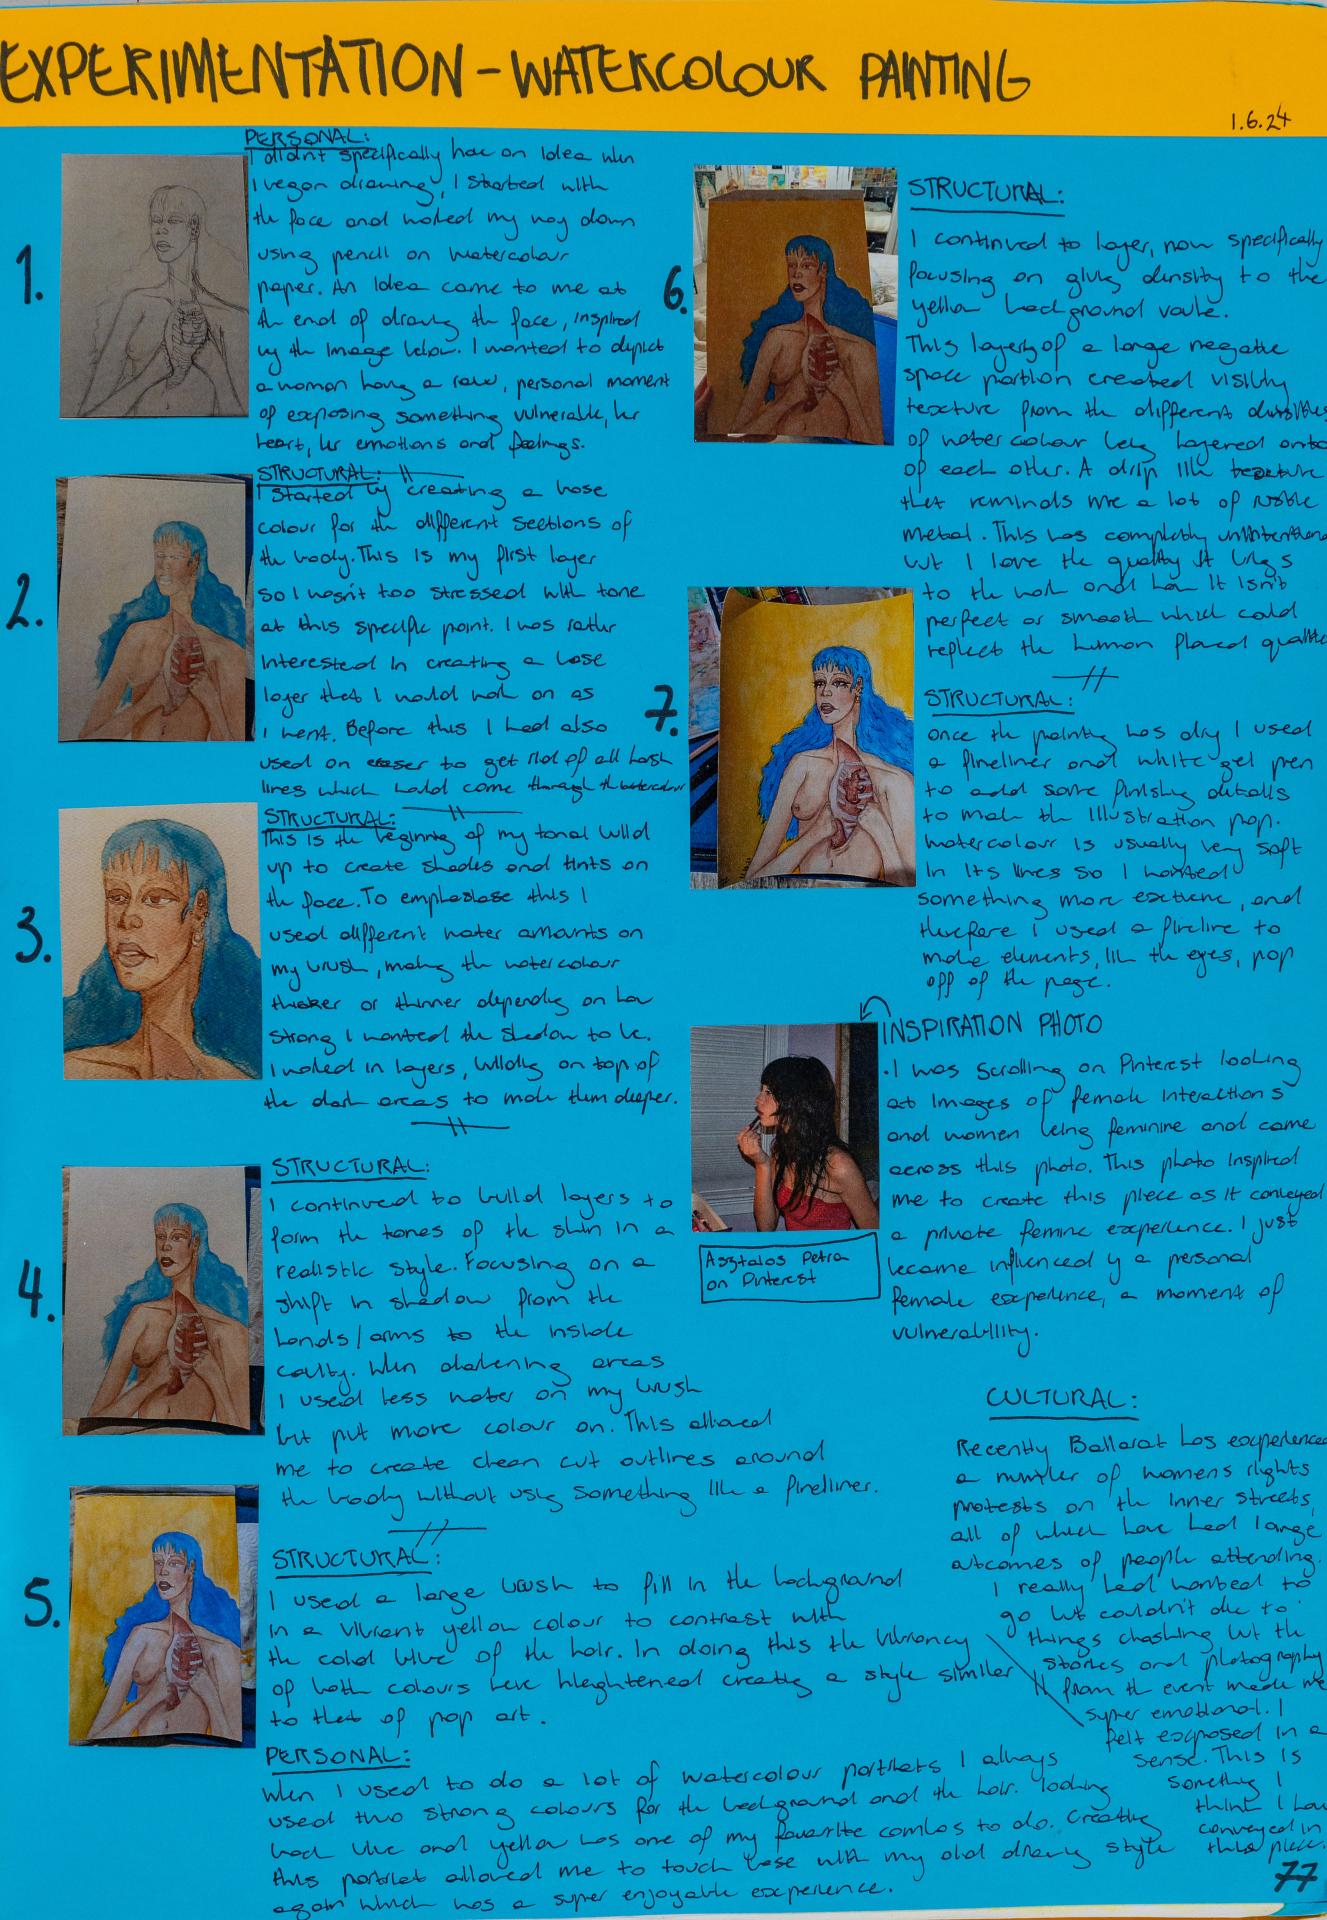 EXPERIMENTATION - WATERCOLOUR PAINTING
1.6.24
1.
PERSONAL:
I didn't specifically have an idea when
I began drawing, I started with
the face and worked my way down
using pencil on watercolour
paper. An idea came to me at
the end of drawing the face, inspired
by the image below. I wanted to depict
a woman having a raw, personal moment
of exposing something vulnerable, her
heart, her emotions and feelings.
2.
STRUCTURAL:
I started by creating a base
colour for the different sections of
the body. This is my first layer
so I wasn't too stressed with tone
at this specific point. I was rather
interested in creating a base
layer that I would work on as
I went. Before this I had also
used an eraser to get rid of all harsh
lines which could come through the watercolour
3.
STRUCTURAL:
This is the beginning of my tonal build
up to create shades and tints on
the face. To emphasise this I
used different water amounts on
my brush, making the watercolour
thicker or thinner depending on how
strong I wanted the shadow to be.
I worked in layers, building on top of
the dark areas to make them deeper.
4.
STRUCTURAL:
I continued to build layers to
form the tones of the skin in a
realistic style. Focusing on a
shift in shadow from the
hands/arms to the inside
cavity. When darkening areas
I used less water on my brush
but put more colour on. This allowed
me to create clean cut outlines around
the body without using something like a fineliner.
5.
STRUCTURAL:
I used a large brush to fill in the background
in a vibrant yellow colour to contrast with
the cold blue of the hair. In doing this the vibrancy
of both colours have hieghtened creating a style similar
to that of pop art.
PERSONAL:
When I used to do a lot of watercolour portraits I always
used two strong colours for the background and the hair. looking
back blue and yellow was one of my favourite combos to do. Creating
this portrait allowed me to touch base with my old drawing style
again which was a super enjoyable experience.
6.
STRUCTURAL:
I continued to layer, now specifically
focusing on giving density to the
yellow background
This layering of a large negative
space portion created visibly
texture from the different
of watercolour being layered onto
of each other. A drip like texture
that reminds me a lot of
metal. This was completly
but I love the quality it brings
to the work and how it isn't
perfect or smooth which could
replect the human flawed
7.
STRUCTURAL:
once the painting was dry I used
a fineliner and white gel pen
to add some finishing details
to make the illustration pop.
watercolour is usually very soft
in its lines so I wanted
something more extreme, and
therefore I used a fineline to
make elements, like the eyes, pop
off of the page.
INSPIRATION PHOTO
.I was scrolling on Pinterest looking
at images of female interactions
and women being feminine and came
across this photo. This photo inspired
me to create this piece as it conveyed
a private femine experience. I just
became influenced by a personal
female experience, a moment of
vulnerability.
Asztalos Petra
on Pinterest
CULTURAL:
Recently Ballarat has experienced
a number of womens rights
protests on the inner streets,
all of which have had large
outcomes of people attending.
I really had wanted to
go but couldn't due to
things clashing but the
stories and photography
from the event made me
super emotional. I
felt exposed in a
sense. This is
something I
think I have
conveyed in
this piece.
77